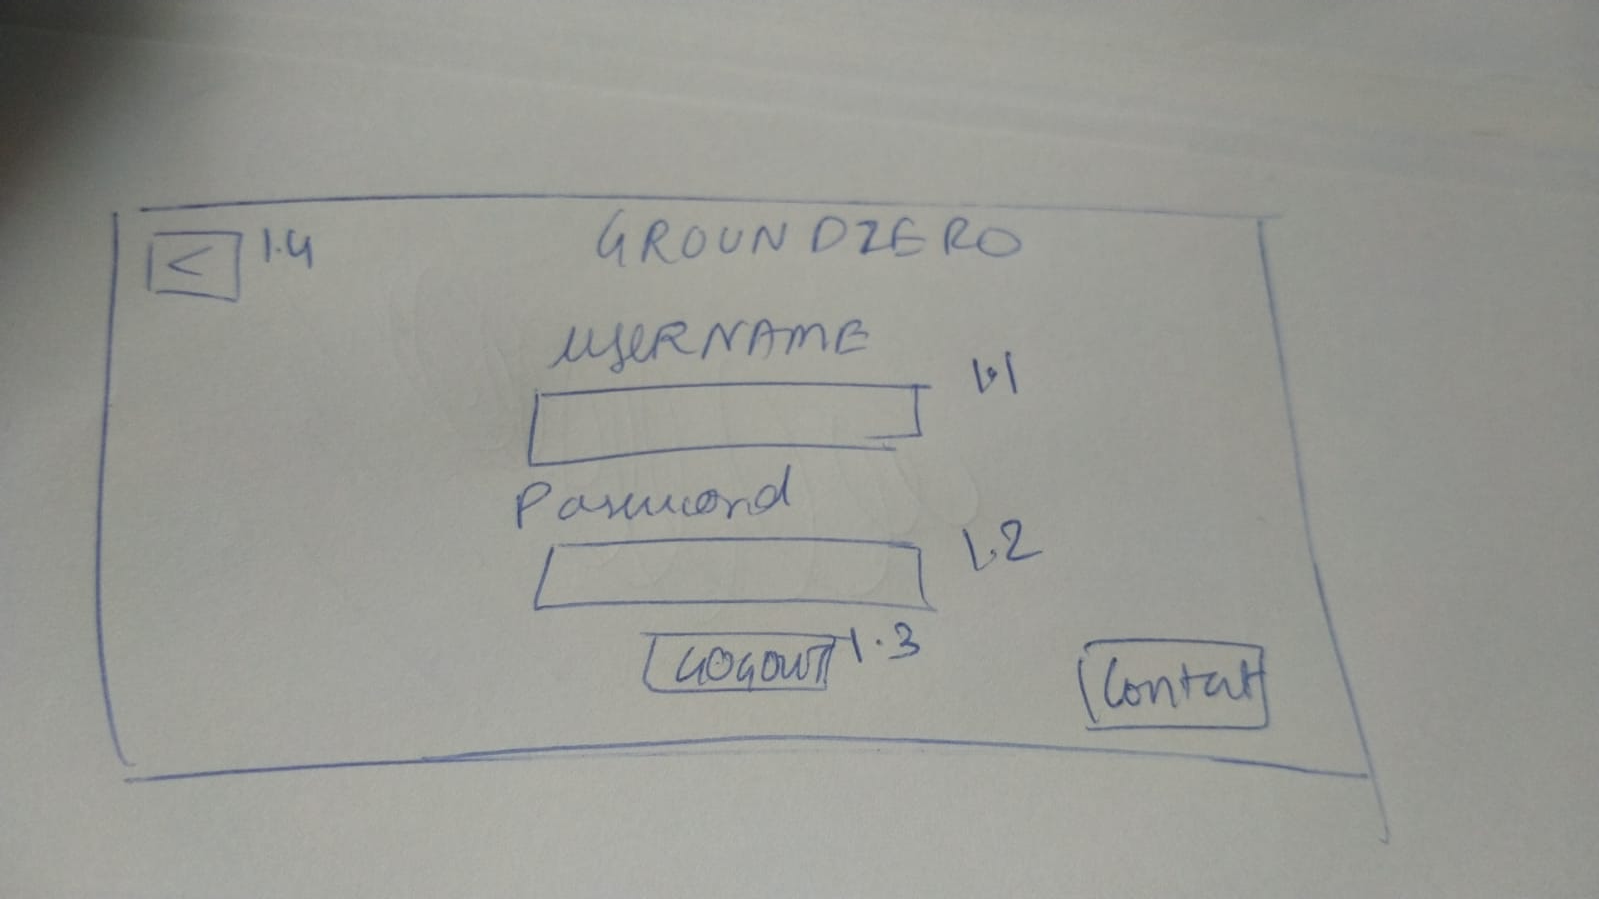 < 1.4
GROUNDZERO
USERNAME
1.1
Password
1.2
LOGOUT 1.3
Contact